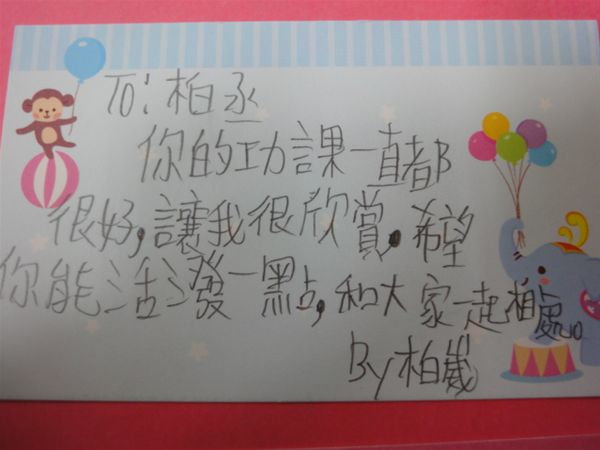 To:柏丞
你的功課一直都
很好,讓我很欣賞.希望
你能活潑一點,和大家一起相處。
By柏崴